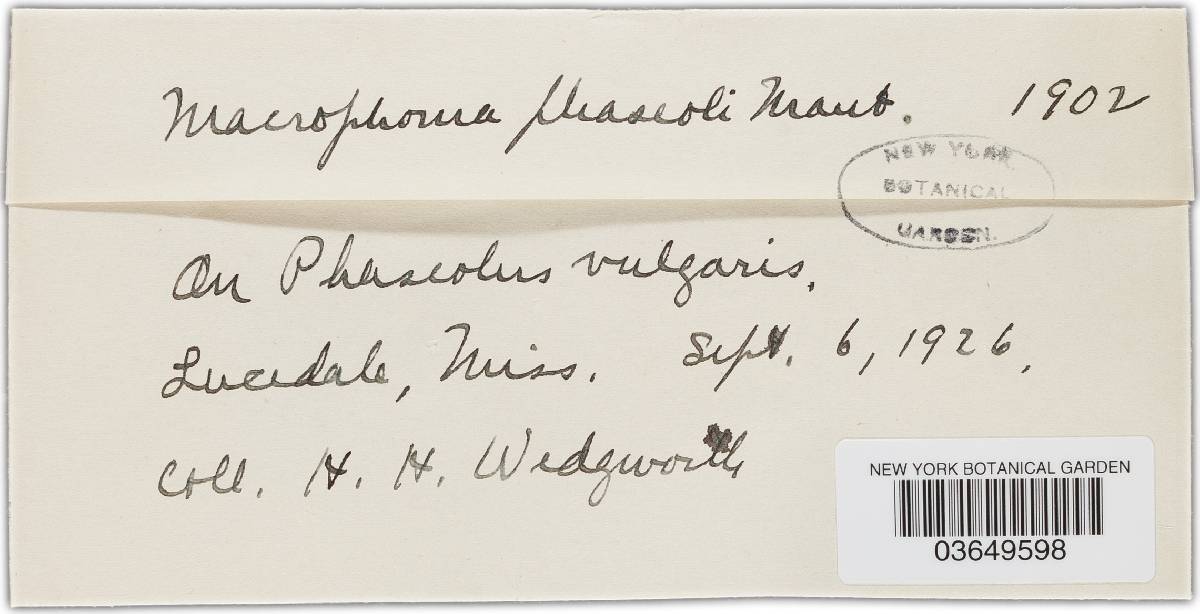 Macrophoma phaseoli Maub. 1902
NEW YORK
BOTANICAL
GARDEN.
On Phaseolus vulgaris.
Lucedale, Miss. Sept. 6, 1926.
Coll. H. H. Wedgworth
NEW YORK BOTANICAL GARDEN
03649598